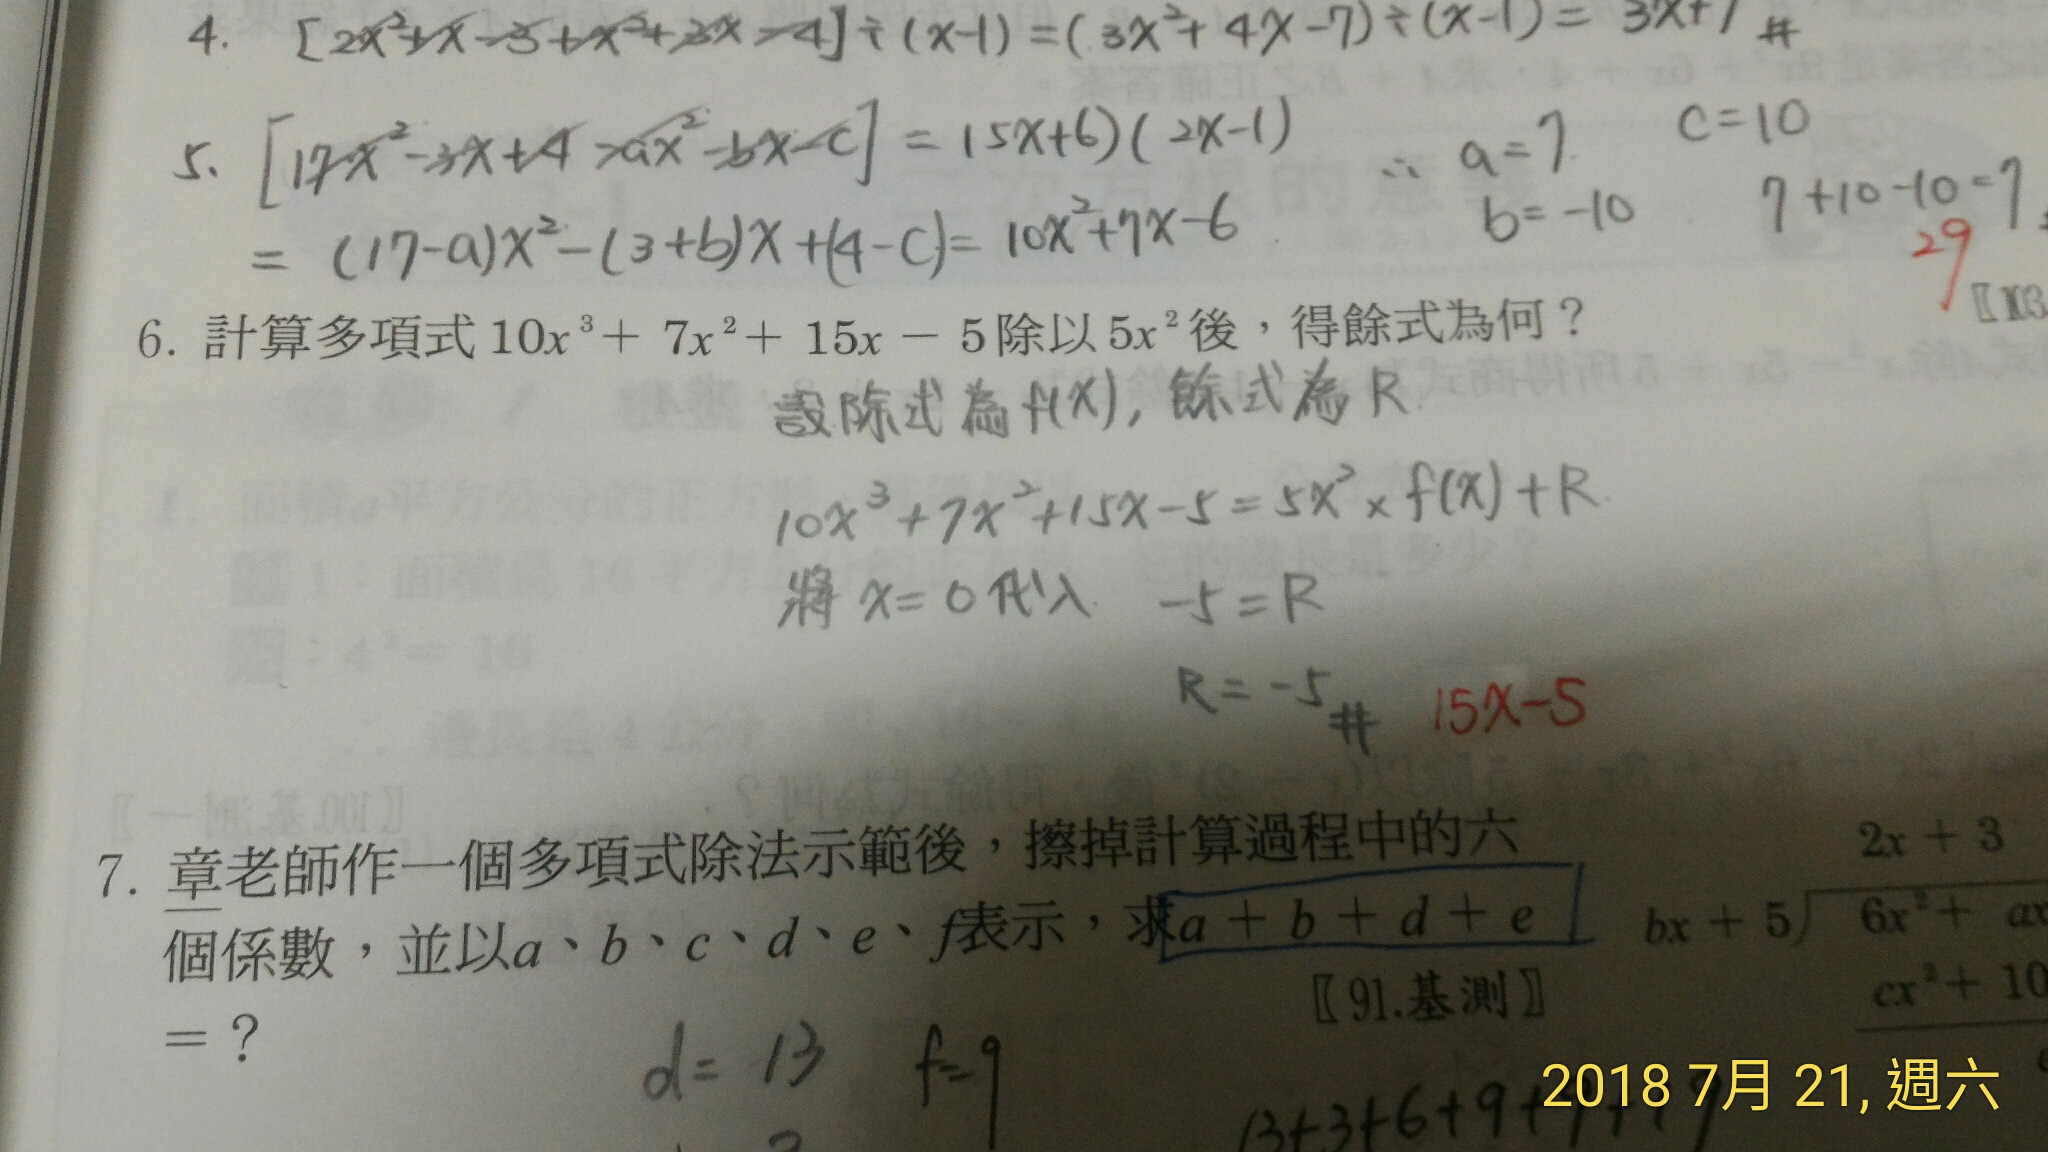 4. [2x²+x-3+x²+3x-4]÷(x-1)=(3x²+4x-7)÷(x-1)=3x+7 #
5. [17x²-3x+4-ax²-bx-c] = (5x+6)(2x-1) ∴ a=7 c=10
= (17-a)x²-(3+b)x+(4-c)= 10x²+7x-6 b=-10 7+10-10=7
29
〖103
6. 計算多項式 10x³ + 7x² + 15x − 5 除以 5x² 後，得餘式為何？
設除式為 f(x), 餘式為 R.
10x³+7x²+15x-5=5x²×f(x)+R.
將 x=0 代入. -5=R
R=-5 # 15x-5
7. 章老師作一個多項式除法示範後，擦掉計算過程中的六
個係數，並以a、b、c、d、e、f表示，求a + b + d + e
= ?
〖91.基測〗
2x + 3
bx + 5) 6x² + ax
cx² + 10
d= 13 f=9
13+3+6+9+
2018 7月 21, 週六